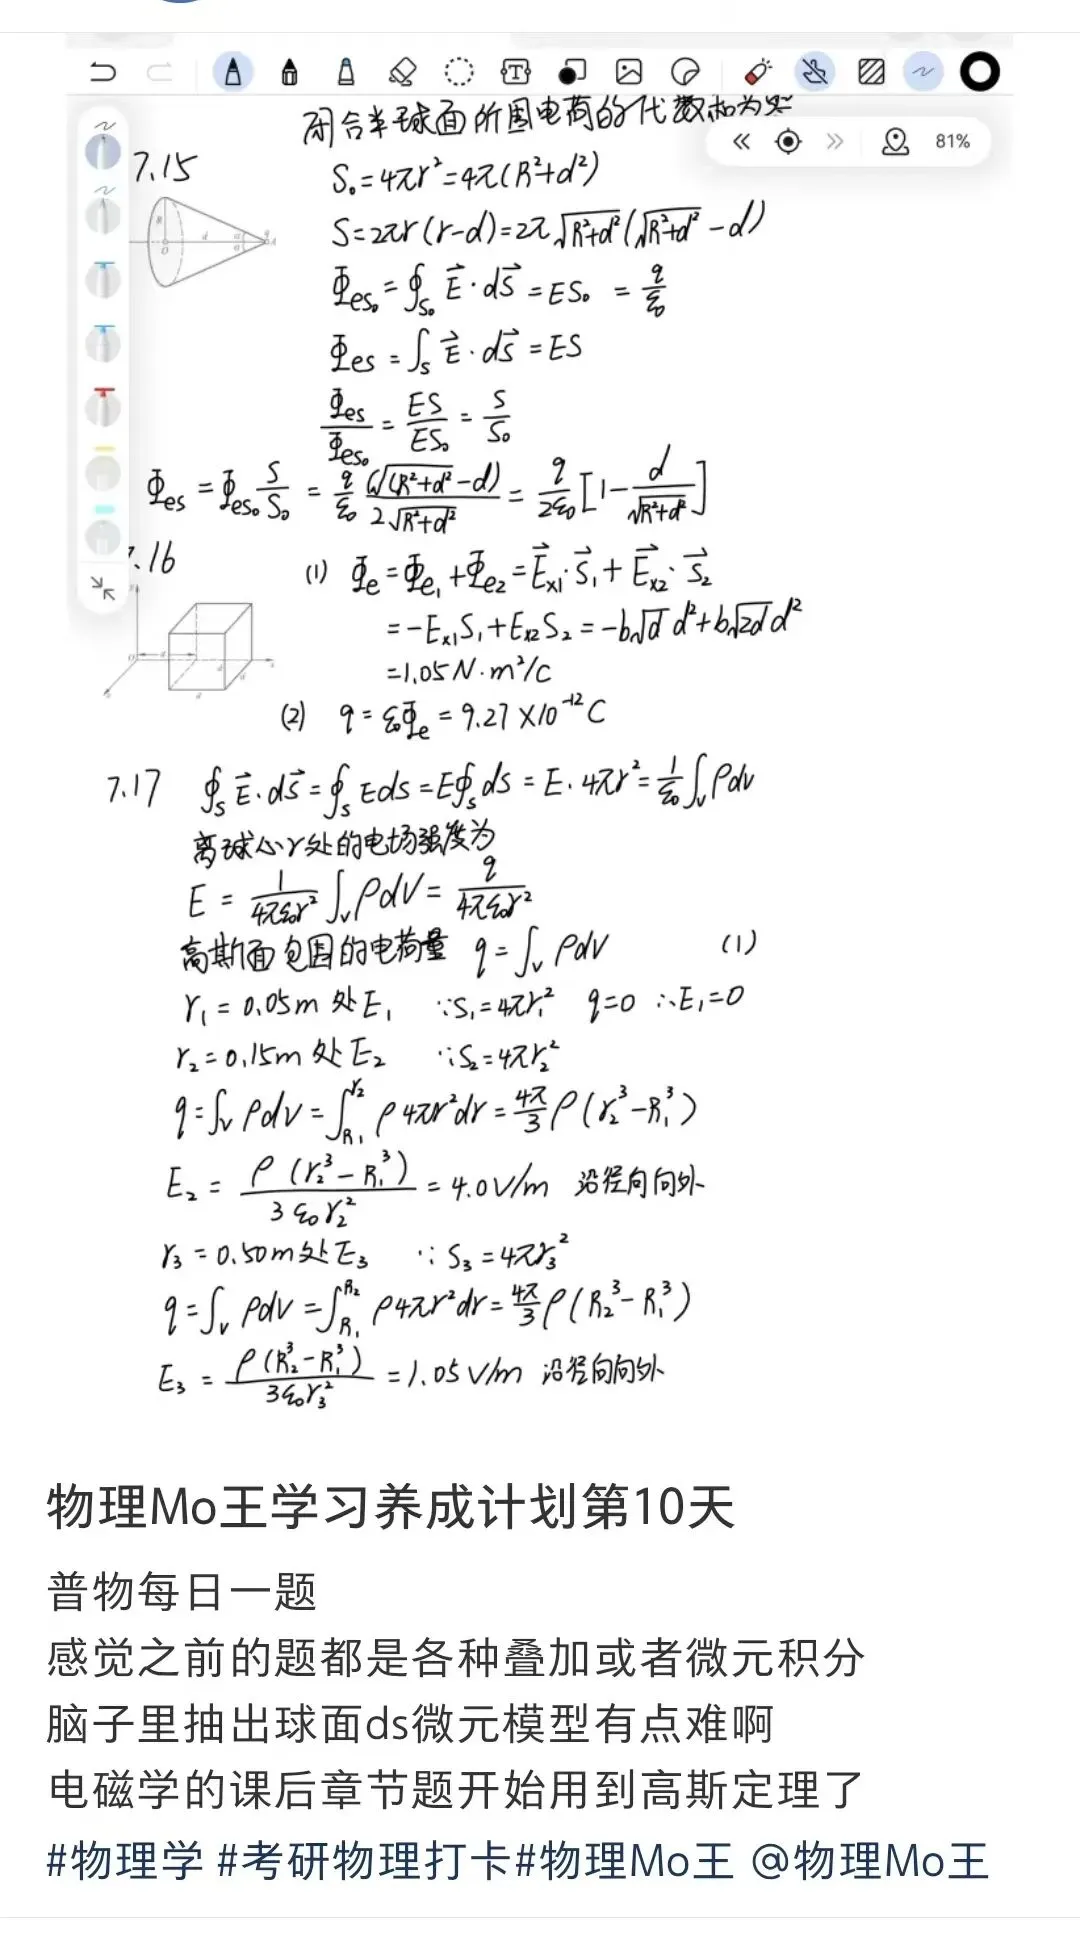 闭合半球面所围电荷的代数和为
81%
7.15
S₀=4πr²=4π(R²+d²)
S=2πr(r-d)=2π√(R²+d²)(√(R²+d²)-d)
Φes₀=∮s₀ E⃗·dS⃗=ES₀=q/ε₀
Φes=∫s E⃗·dS⃗=ES
Φes/Φes₀=ES/ES₀=S/S₀
Φes=Φes₀ S/S₀=q/ε₀ (√(R²+d²)-d)/(2√(R²+d²))=q/2ε₀[1-d/√(R²+d²)]
.16
(1) Φe=Φe₁+Φe₂=E⃗x₁·S⃗₁+E⃗x₂·S⃗₂
=-Ex₁S₁+Ex₂S₂=-b√d d²+b√2d d²
=1.05N·m²/C
(2) q=ε₀Φe=9.27×10⁻¹²C
7.17 ∮s E⃗·dS⃗=∮s Eds=E∮s ds=E·4πr²=1/ε₀∫v ρdv
离球心r处的电场强度为
E=1/(4πε₀r²)∫v ρdV=q/(4πε₀r²)
高斯面包围的电荷量 q=∫v ρdV (1)
r₁=0.05m处E₁ ∵S₁=4πr₁² q=0 ∴E₁=0
r₂=0.15m处E₂ ∵S₂=4πr₂²
q=∫v ρdv=∫R₁^r₂ ρ4πr²dr=4π/3 ρ(r₂³-R₁³)
E₂=ρ(r₂³-R₁³)/(3ε₀r₂²)=4.0V/m 沿径向向外
r₃=0.50m处E₃ ∵S₃=4πr₃²
q=∫v ρdv=∫R₁^R₂ ρ4πr²dr=4π/3 ρ(R₂³-R₁³)
E₃=ρ(R₂³-R₁³)/(3ε₀r₃²)=1.05V/m 沿径向向外
物理Mo王学习养成计划第10天
普物每日一题
感觉之前的题都是各种叠加或者微元积分
脑子里抽出球面ds微元模型有点难啊
电磁学的课后章节题开始用到高斯定理了
#物理学 #考研物理打卡#物理Mo王 @物理Mo王